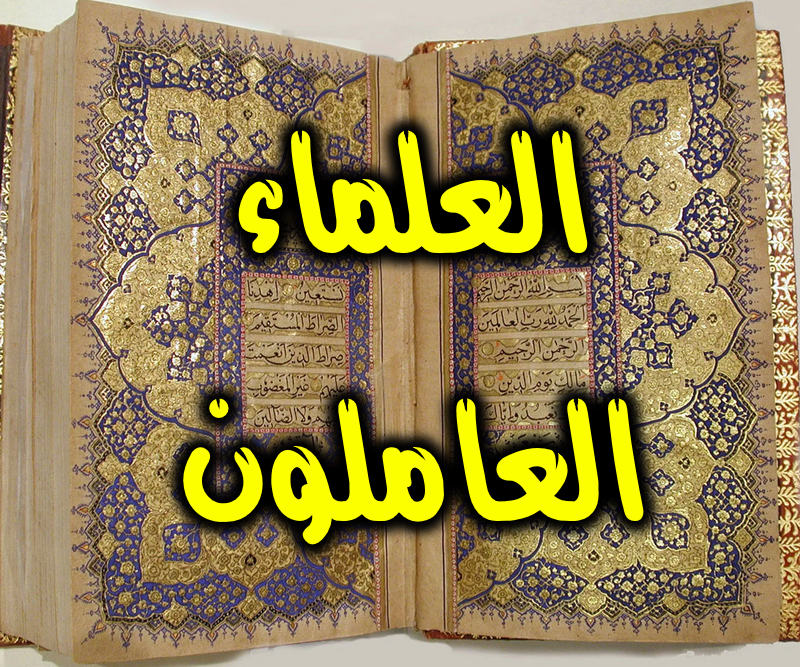 العلماء
العاملون
بسم الله الرحمن الرحيم
الحمد لله رب العالمين
الرحمن الرحيم
مالك يوم الدين
نعبد وإياك
نستعين اهدنا
الصراط المستقيم
صراط الذين أنعمت
عليهم غير المغضوب
ولا الضالين